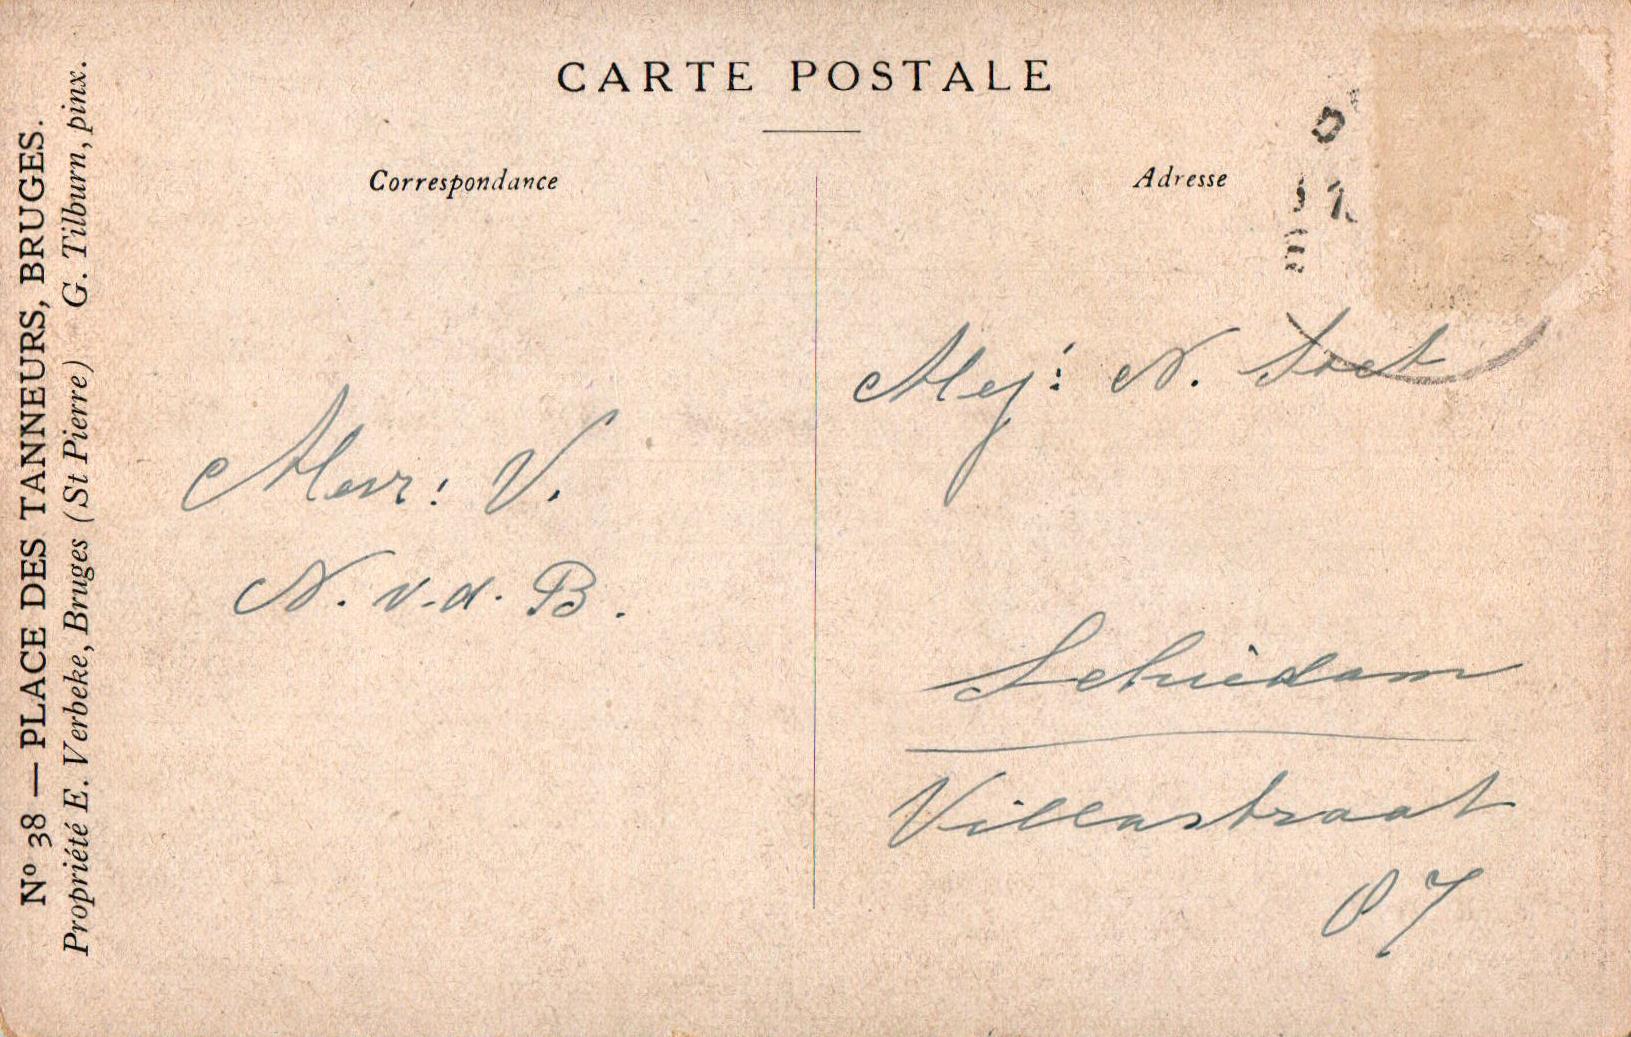 CARTE POSTALE
Correspondance
Adresse
Nº 38 — PLACE DES TANNEURS, BRUGES.
Propriété E. Verbeke, Bruges (St Pierre) G. Tilburn, pinx.
V.
N. v.d. B.
Mej: N.
Schiedam
Villastraat